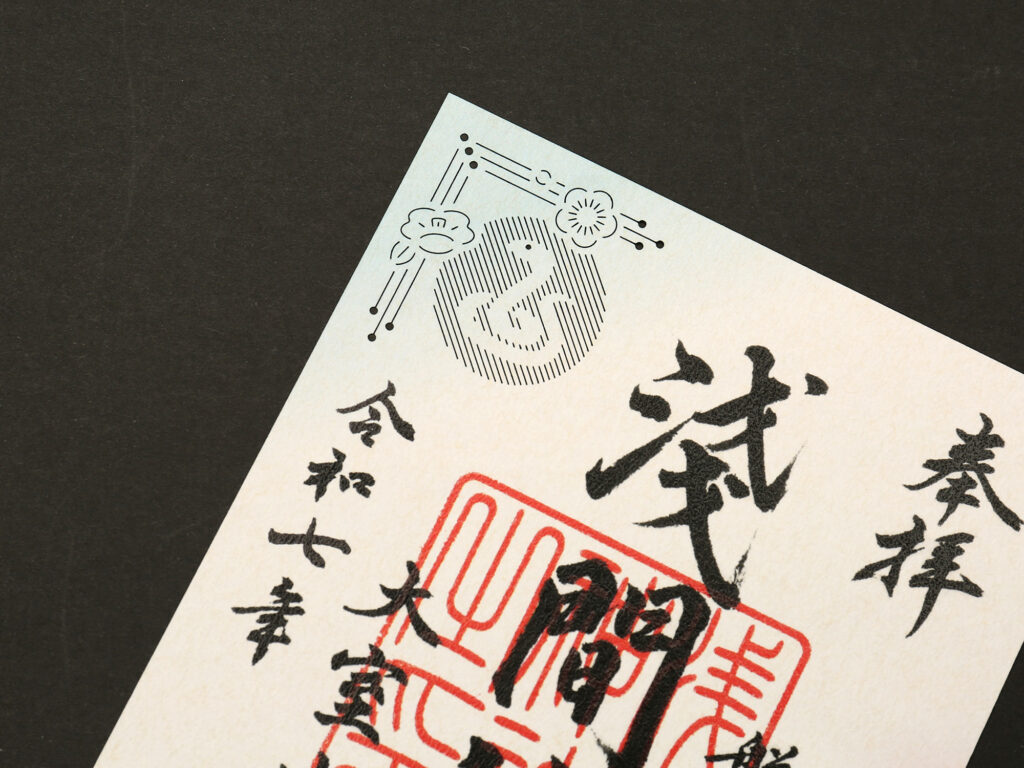 奉拝
淺間
大室
令和七年